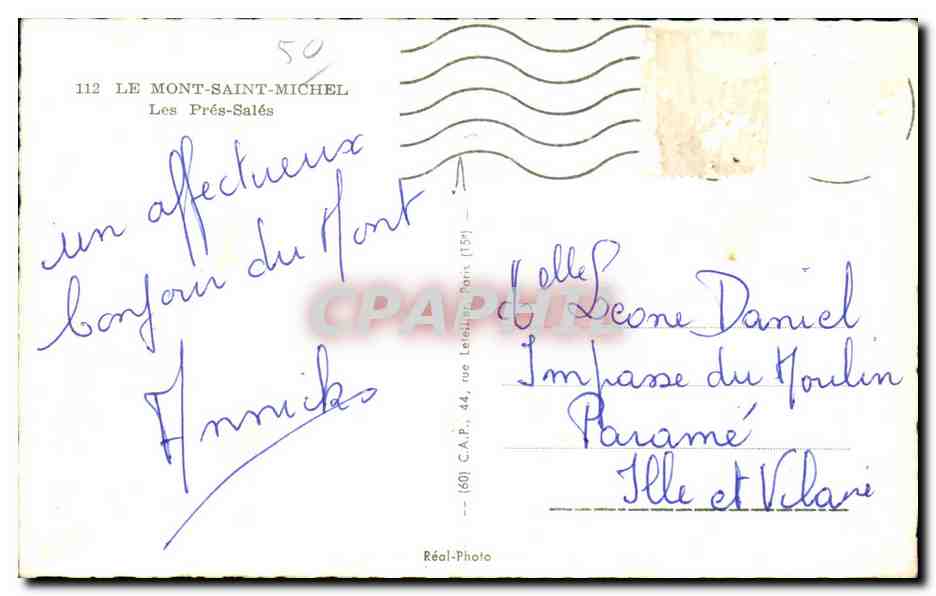 50
112 LE MONT-SAINT-MICHEL
Les Prés-Salés
un affectueux
bonjour du Mont
Annick
(60) C.A.P., 44, rue Letellier, Paris (15e)
CPAPHIL
Léone Daniel
Impasse du Moulin
Paramé
Ille et Vilaine
Réal-Photo